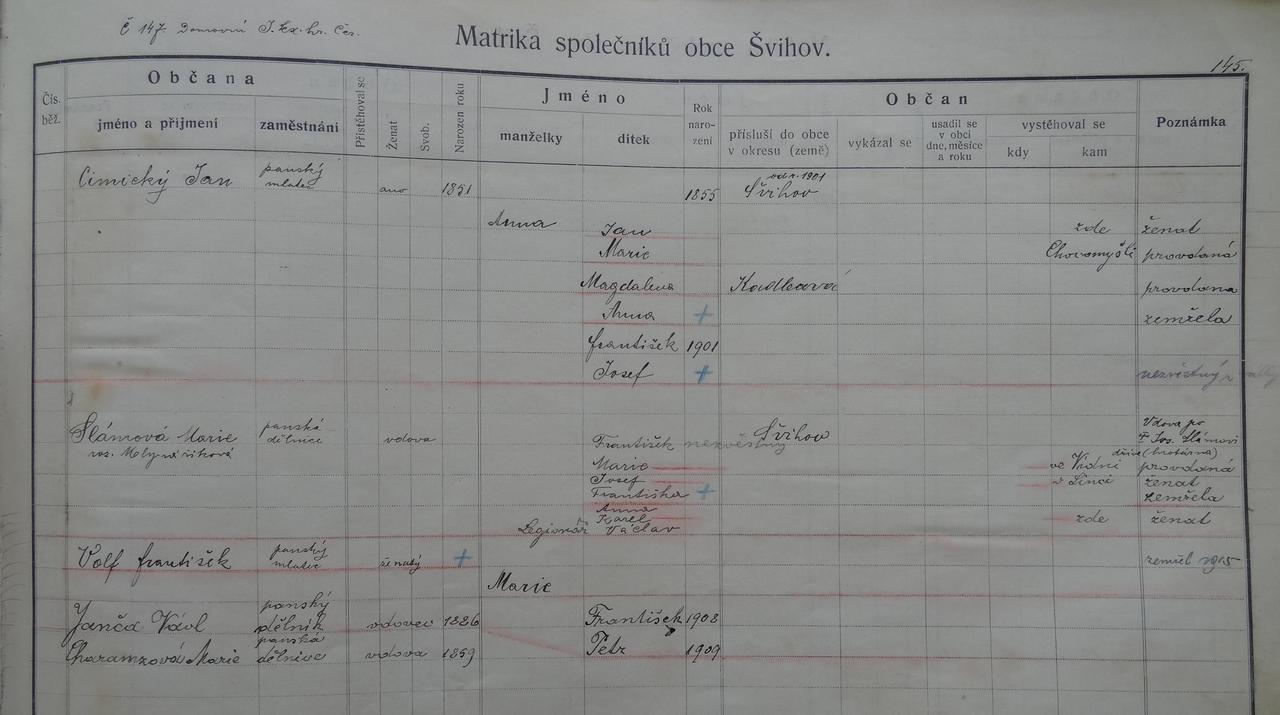 Č 147 Domovní
Matrika společníků obce Švihov.
145.
Čís. běž.
Občana
jméno a přijmení
zaměstnání
Přistěhoval se
Ženat
Svob.
Narozen roku
Jméno
manželky
dítek
Rok naro- zení
Občan
přísluší do obce v okresu (země)
vykázal se
usadil se v obci dne, měsíce a roku
vystěhoval se
kdy
kam
Poznámka
Cimický Jan panský mlatec ano 1851 1855 od r. 1901 Švihov
Anna Jan zde ženat
Marie provdaná
Magdalena provdana
Anna + zemřela
František 1901
Josef +
Slámová Marie panská dělnice vdova František nezvěstný Švihov Vdova po
roz. Mlynaříková
Marie ve Vídni provdaná
Josef v Linci ženat
Františka + zemřela
Anna
Karel zde ženat
Legionář Václav
Volf František panský mlatec ženatý + zemřel 1915
Marie
panský dělník vdovec František 1908
Charamzová Marie panská dělnice vdova 1859 Petr 1909